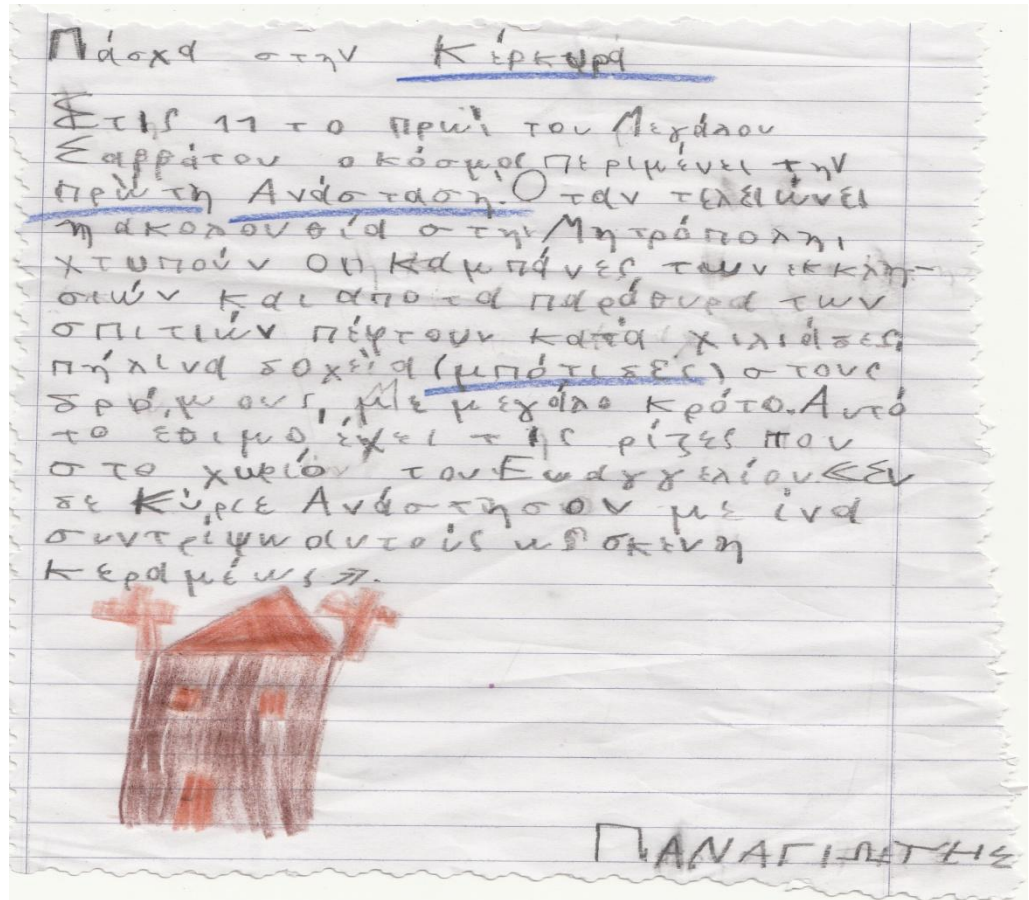 Πάσχα στην Κέρκυρα
Στις 11 το πρωί του Μεγάλου
Σαββάτου ο κόσμος περιμένει την
πρώτη Ανάσταση. Όταν τελειώνει
η ακολουθία στην Μητρόπολη,
χτυπούν οι καμπάνες των εκκλη-
σιών και απο τα παράθυρα των
σπιτιών πέφτουν κατά χιλιάδες
πήλινα δοχεία (μπότιδες) στους
δρόμους, Με μεγάλο κρότο. Αυτό
το εθιμο έχει τις ρίζες που
στο χωρίον του Ευαγγελίου <<Συ
δε Κύριε Ανάστησον με ίνα
συντρίψω αυτούς ως σκένη
κεραμέως>>.
ΠΑΝΑΓΙΩΤΗΣ